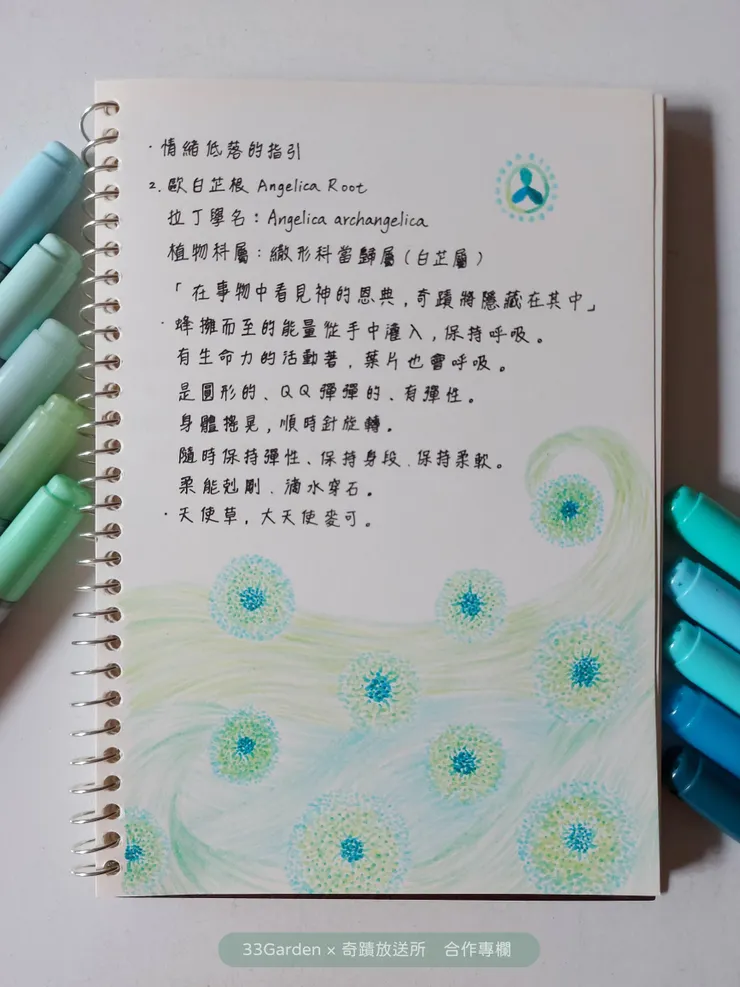 ·情緒低落的指引
2. 歐白芷根 Angelica Root
拉丁學名：Angelica archangelica
植物科屬：繖形科當歸屬（白芷屬）
「在事物中看見神的恩典，奇蹟將隱藏在其中」
·蜂擁而至的能量從手中灌入，保持呼吸。
有生命力的活動著，葉片也會呼吸。
是圓形的、QQ彈彈的、有彈性。
身體搖晃，順時針旋轉。
隨時保持彈性、保持身段、保持柔軟。
柔能剋剛、滴水穿石。
·天使草，大天使麥可。
33Garden × 奇蹟放送所　合作專欄